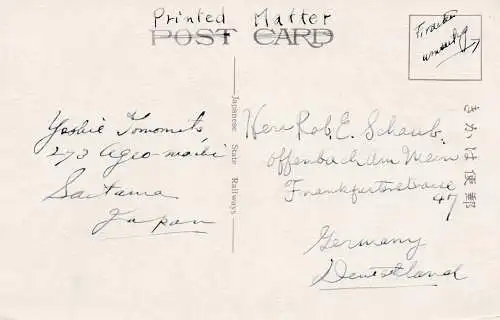 Printed Matter
POST CARD
umseitig
Yoshie Tomomats
273 Ageo-machi
Saitama
Japan
Japanese State Railways
Herr Rob. E. Schaub.
Offenbach am Main
Frankfurterstrasse
47
Germany
Deutschland
きかは便郵